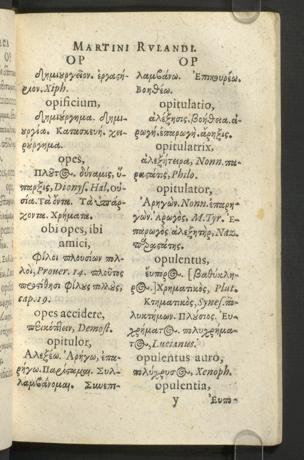 MARTINI RVLANDI.
OP
δημιουργεῖον. ἐργαστή-
ριον. Xiph.
opificium,
δημιούργημα. δημι-
ουργία. Κατασκευή. χει-
ρούργημα.
opes,
Πλοῦτος. δύναμις, ὕ-
παρξις, Dionys. Hal. οὐ-
σία. Τὰ ὄντα. Τὰ ὑπάρ-
χοντα. Χρήματα.
obi opes, ibi
amici,
φίλοι πλουσίων πολ-
λοὶ, Prouer. 14. πλοῦτος
προςτίθησι φίλους πολλοὺς,
cap. 19.
opes accidere,
Demost.
opitulor,
Ἀλεξέω. Ἀρήγω, ἐπα-
ρήγω. Παρίσταμαι. Συλ-
λαμβάνομαι. Συνεπι-
OP
λαμβάνω. Ἐπικουρέω.
Βοηθέω.
opitulatio,
ἀλέξησις. βοήθεια. ἀ-
ρωγή. ἐπαρωγή. ἄρηξις.
opitulatrix,
ἀλεξήτειρα, Nonn. πα-
ραστάτις, Philo.
opitulator,
Ἀρηγών. Nonn. ἐπαρη-
γών. Ἀρωγὸς, M. Tyr. Ἐ-
παρωγός. ἀλεξητὴρ, Naz.
προστάτης.
opulentus,
εὔπορος. [βαθύκλη-
ρος.] Χρηματικὸς, Plut.
Κτηματικὸς, Synes. πο-
λυκτήμων. Πλούσιος. Εὐ-
χρήματος. πολυχρήμα-
τος, Lucianus.
opulentus auro,
πολύχρυσος, Xenoph.
opulentia,
y Ἐυπο-